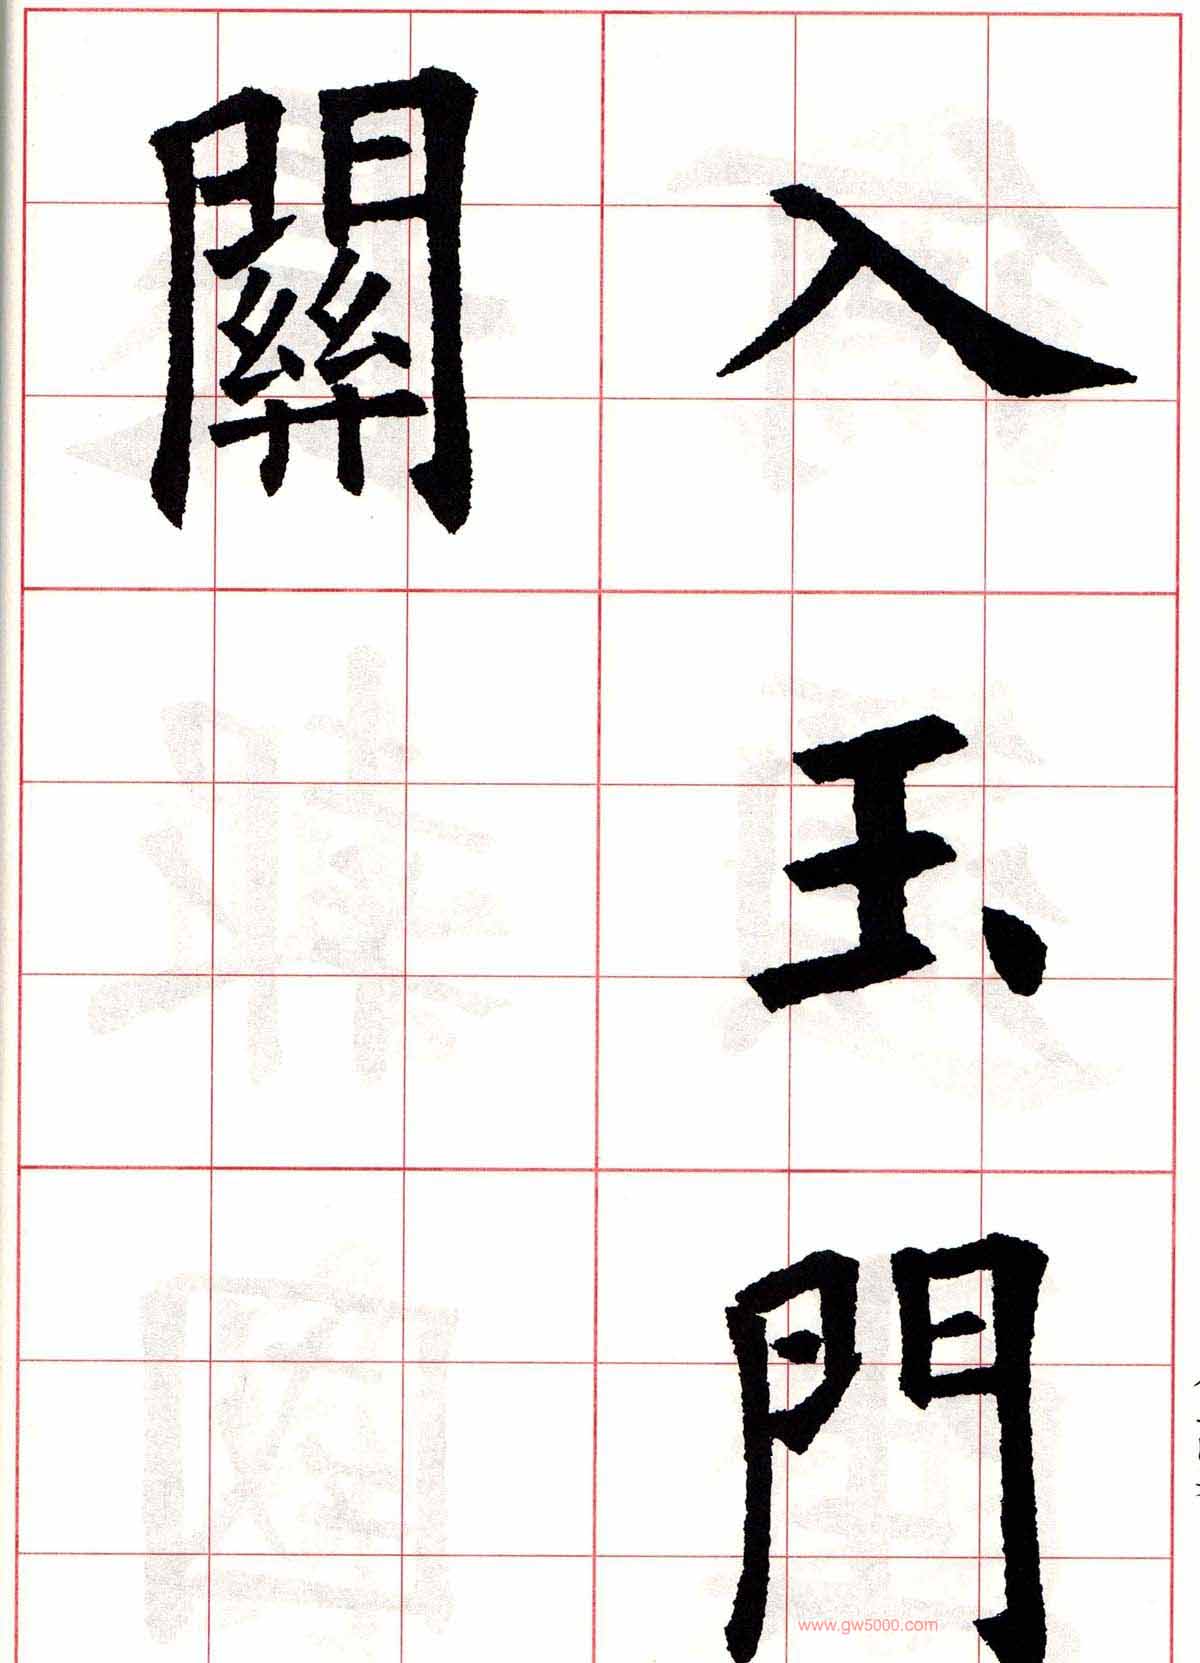 入玉門
關
www.gw5000.com